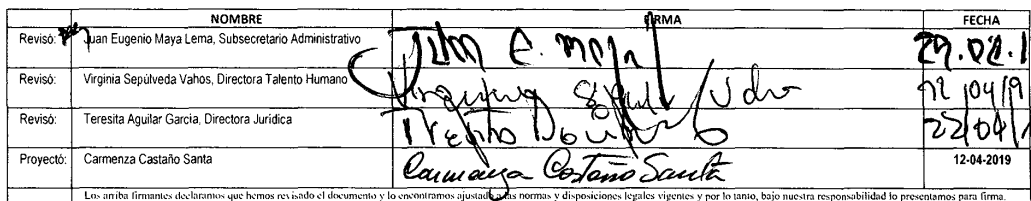 NOMBRE FIRMA FECHA
Revisó: Juan Eugenio Maya Lema, Subsecretario Administrativo
Revisó: Virginia Sepúlveda Vahos, Directora Talento Humano
Revisó: Teresita Aguilar Garcia, Directora Jurídica 22/04/
Proyectó: Carmenza Castaño Santa Carmenza Castaño Santa 12-04-2019
Los arriba firmantes declaramos que hemos revisado el documento y lo encontramos ajustado a las normas y disposiciones legales vigentes y por lo tanto, bajo nuestra responsabilidad lo presentamos para firma.